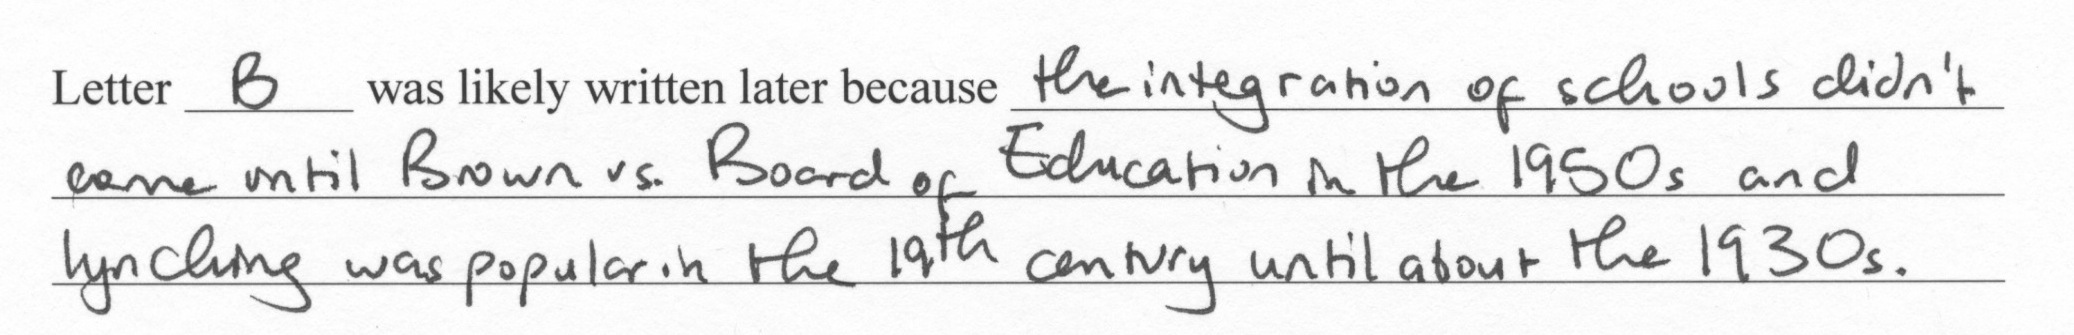 Letter B was likely written later because the integration of schools didn't
come until Brown vs. Board of Education in the 1950s and
lynching was popular in the 19th century until about the 1930s.